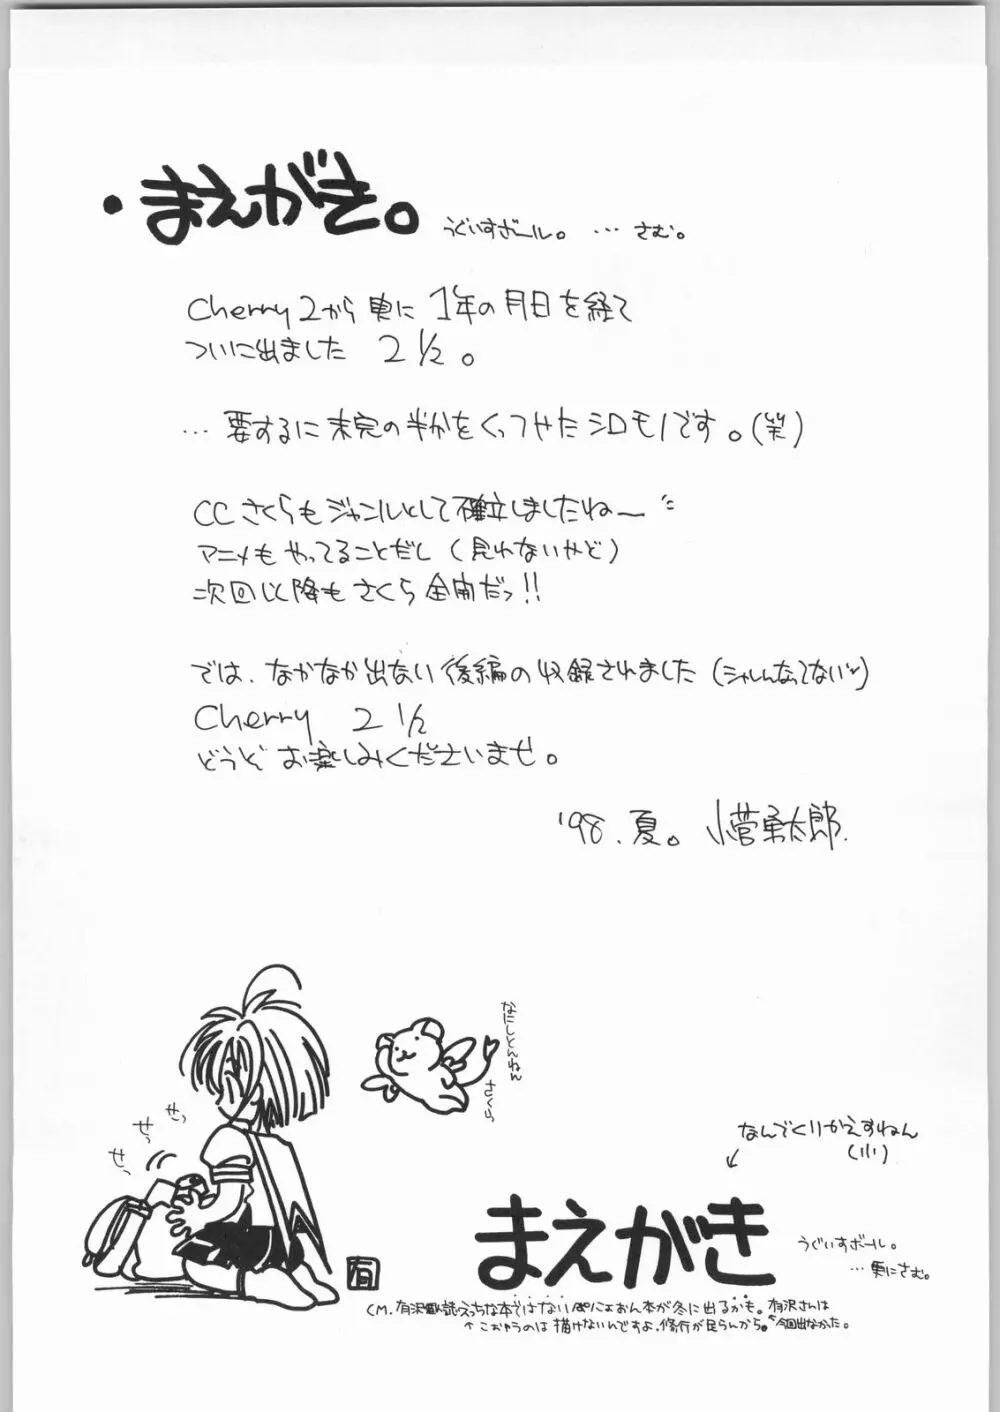 ・まえがき。
うぐいすボール。 … さむ。
Cherry 2から更に 1年の月日を経て
ついに出ました 2 1/2。
… 要するに未完の半かをくっつやたシロモノです。(笑)
CCさくらもジャンルとして確立しましたね〜
アニメもやってることだし (見れないやど)
次回以降も さくら全開だっ!!
では、なかなか出ない後編の収録されました (シャレんなってない)
Cherry 2 1/2
どうぞ お楽しみくださいませ。
'98.夏。小菅勇太郎.
なにしとんねん
さくら
せっ
せっ
せっ
なんでくりかえすねん
(小)
まえがき
うぐいすボール。
… 更にさむ。
有
CM. 有沢 えっちな本ではない にょおん本が冬に出るかも。有沢さんは
↑こおゆうのは 描けないんですよ、修行が足らんから。 今回出なかった。